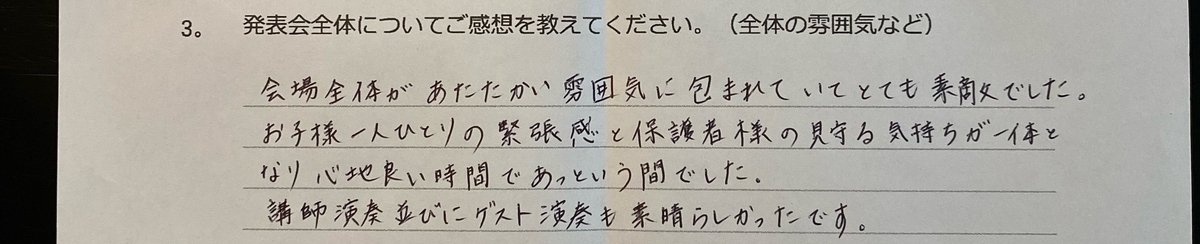 3。 発表会全体についてご感想を教えてください。（全体の雰囲気など）
会場全体があたたかい雰囲気に包まれていてとても素敵でした。
お子様一人ひとりの緊張感と保護者様の見守る気持ちが一体と
なり心地良い時間であっという間でした。
講師演奏並びにゲスト演奏も素晴らしかったです。